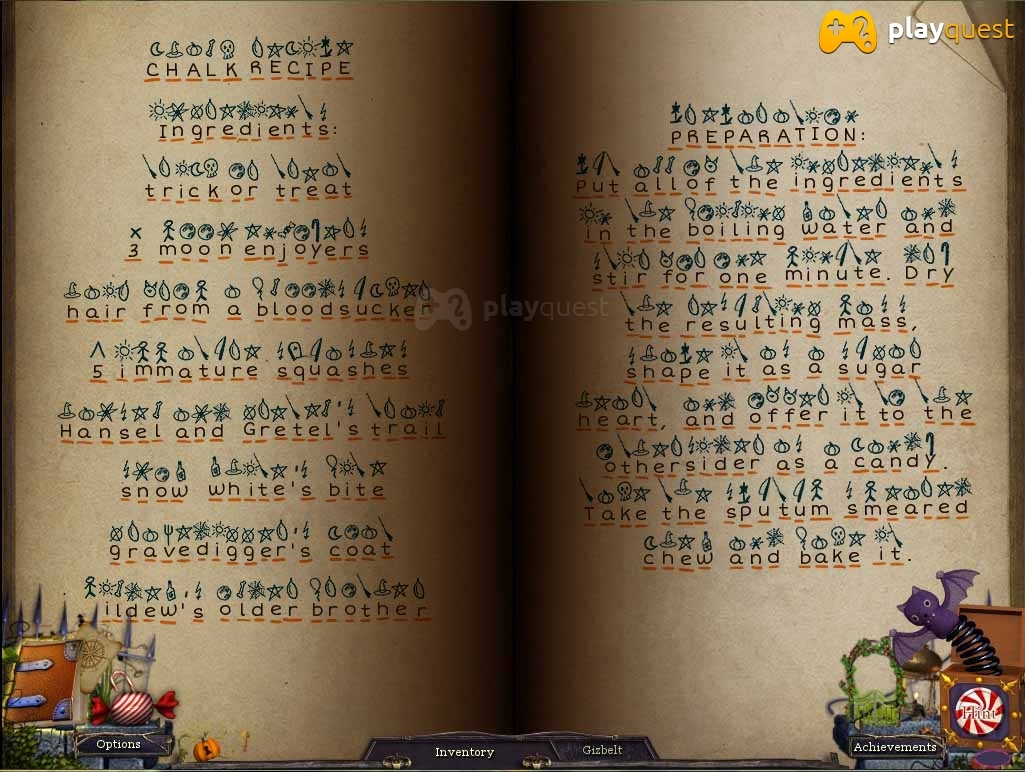 playquest
CHALK RECIPE
Ingredients:
trick or treat
3 moon enjoyers
hair from a bloodsucker
5 immature squashes
Hansel and Gretel's trail
snow white's bite
gravedigger's coat
ildew's older brother
PREPARATION:
Put all of the ingredients
in the boiling water and
stir for one minute. Dry
the resulting mass,
shape it as a sugar
heart, and offer it to the
othersider as a candy.
Take the sputum smeared
chew and bake it.
playquest
Hint
Options
Inventory
Gizbelt
Achievements